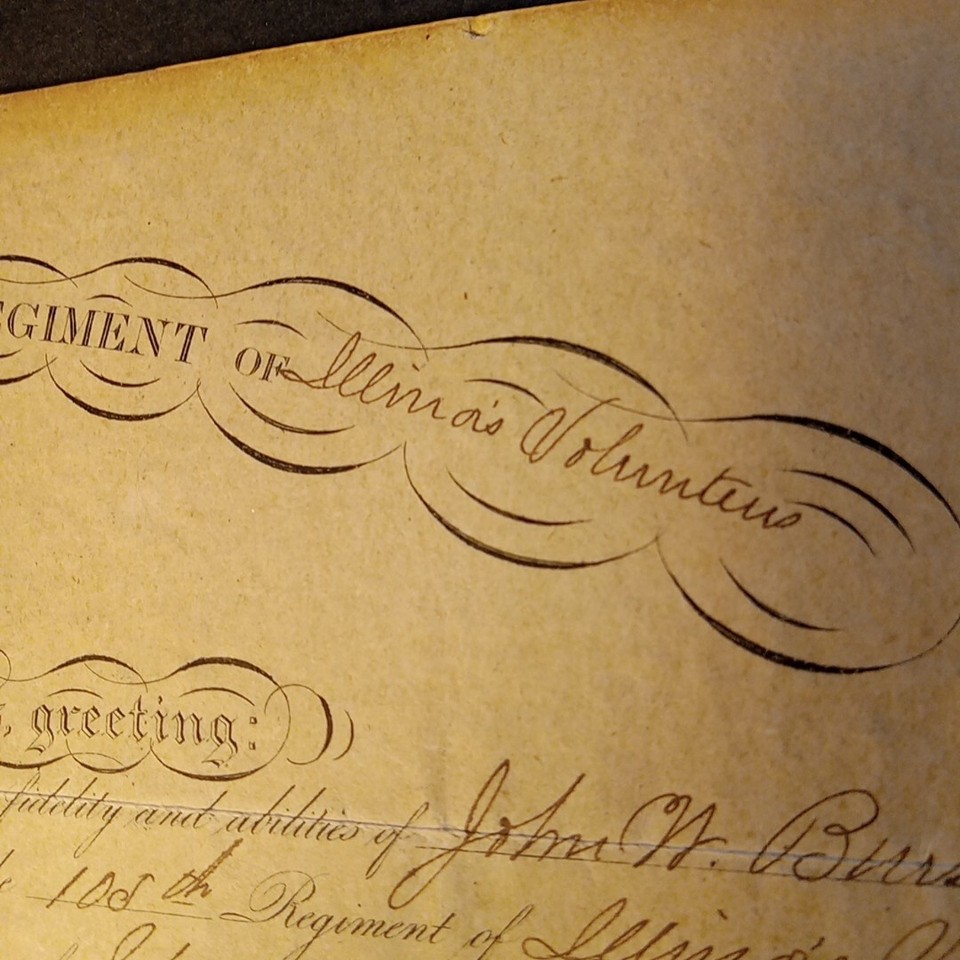 EGIMENT OF Illinois Volunteers
greeting:
fidelity and abilities of John W. Burs
108th Regiment of Illinois